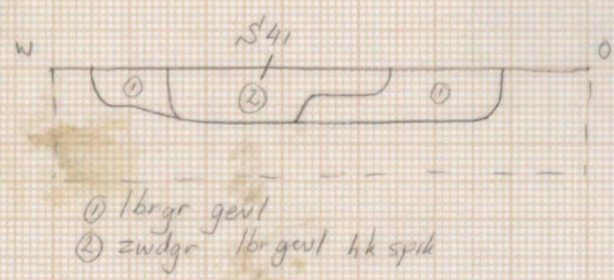 S 41
W O
① ② ①
① lbrgr gevl
② zwdgr lbrgevl hk spik